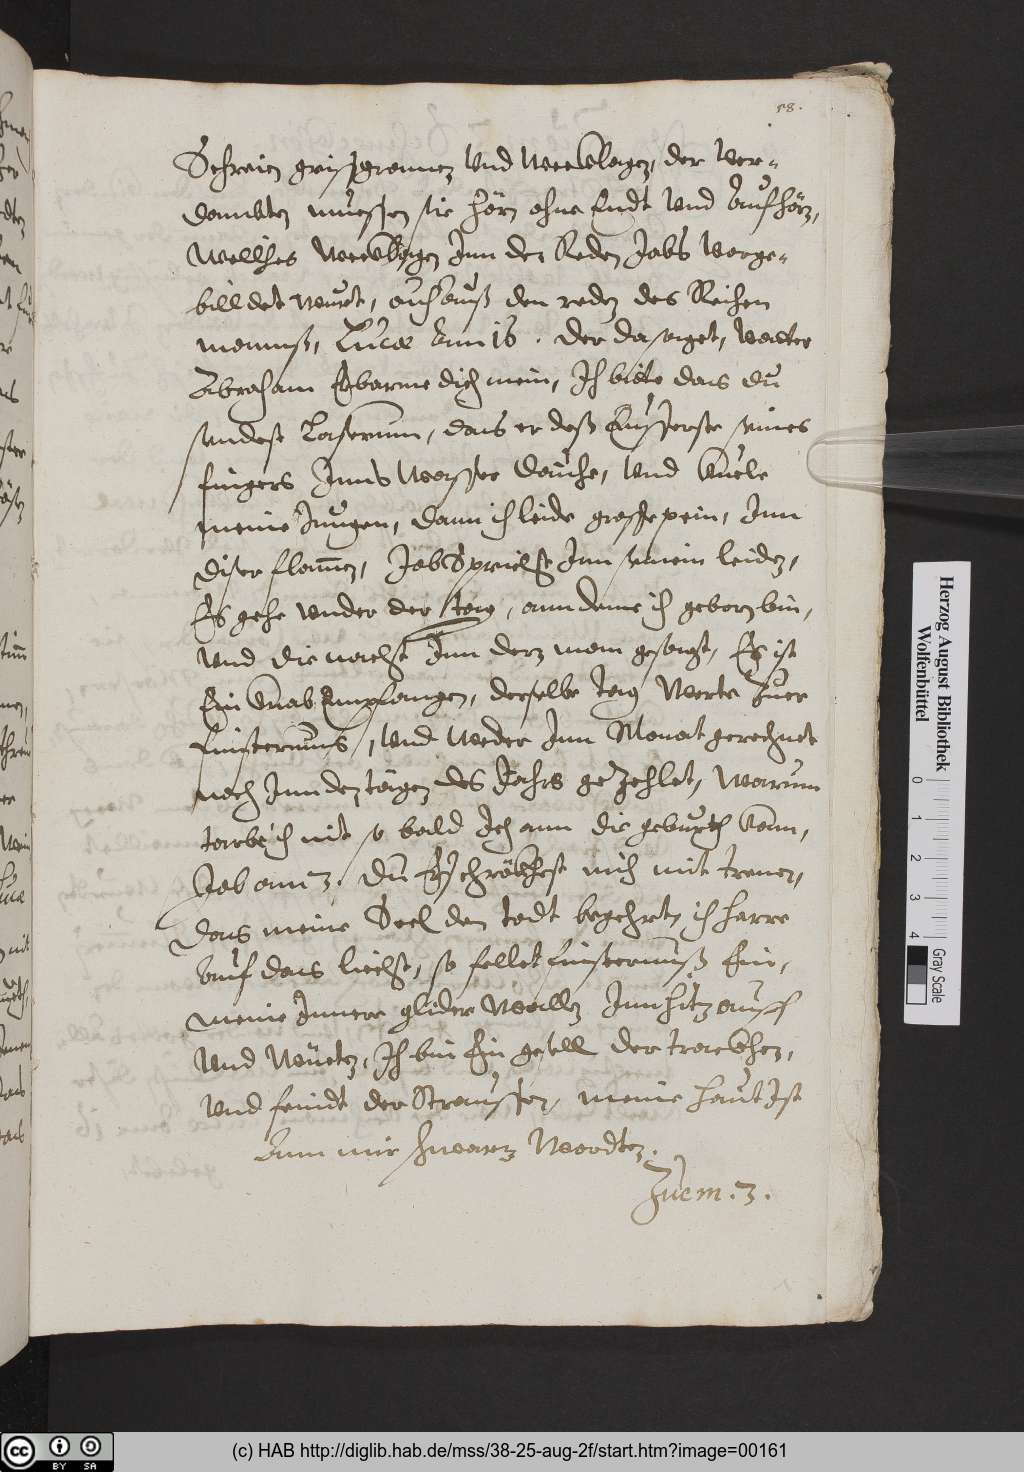 58.
Schreien grißgramen Vnd Weeklagen, der Ver-
dambten muessen sie hörn ohne Endt Vnd Aufhörn,
Wellches Weeklagen Inn den Reden Jobs Vorge-
billdet wurt, auch Auß den reden des Reichen
manns, Lucæ Am 16. der da saget, Vatter
Abraham Erbarme dich mein, Ich bitte das du
sendest Lasarum, das er deß Eusserste seines
fingers Inns Wasser dauche, Vnd Küele
meine Zungen, dann ich leide grosse pein, Inn
diser flamen, Job Spricht Inn seinem leiden,
Es gehe Vnder der tag, ann deme ich geborn bin,
Vnd die nacht Inn derr man gesagt, Es ist
Ein Knab Empfangen, derselbe tag Werde Zuer
finsternuus, Vnd Werde Inn Monat gerechnet
noch Inn den tägen des Jahrs gezehlet, Warum
starb ich nit so bald Ich ann die geburth kam,
Job am 3. Du Erschröckhest mich mit tremen,
das meine Seel den todt begehrt, ich harre
Auf das liecht, so fellet finsternuß Ein,
meine Innere glider Wallen Inn hitz auff
Vnd Wüeten, Ich bin Ein gesell der trackhen,
Vnd feindt der Straussen, meine haut Ist
Ann mir schwartz Wordten.
Zuem. 3.
Herzog August Bibliothek
Wolfenbüttel
0 1 2 3 4
Gray Scale
CC BY SA
(c) HAB http://diglib.hab.de/mss/38-25-aug-2f/start.htm?image=00161